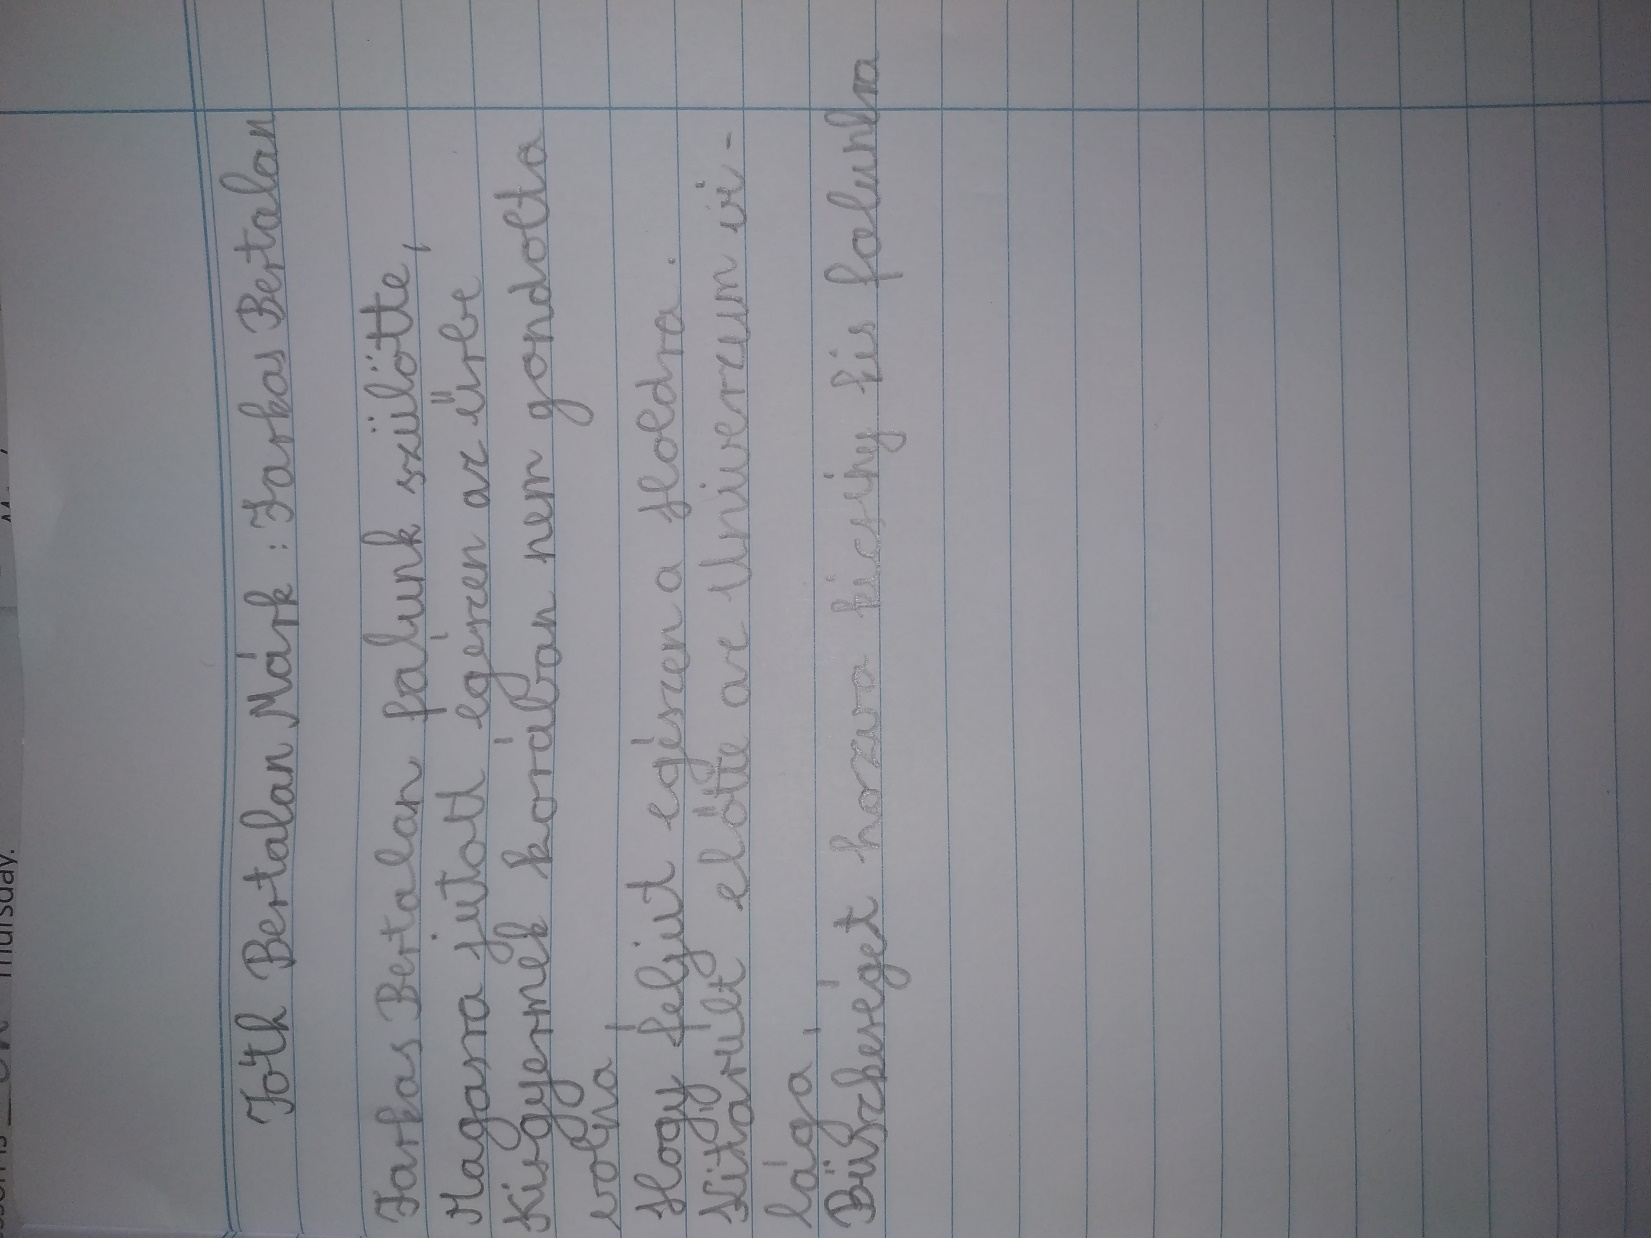 Tóth Bertalan Márk : Farkas Bertalan
Farkas Bertalan falunk szülötte,
Magasra jutott egészen az űrbe
Kisgyermek korában nem gondolta
volna,
Hogy feljut egészen a Holdra.
Kitárult előtte az Univerzum vi-
lága,
Büszkeséget hozva kicsiny kis falunkra